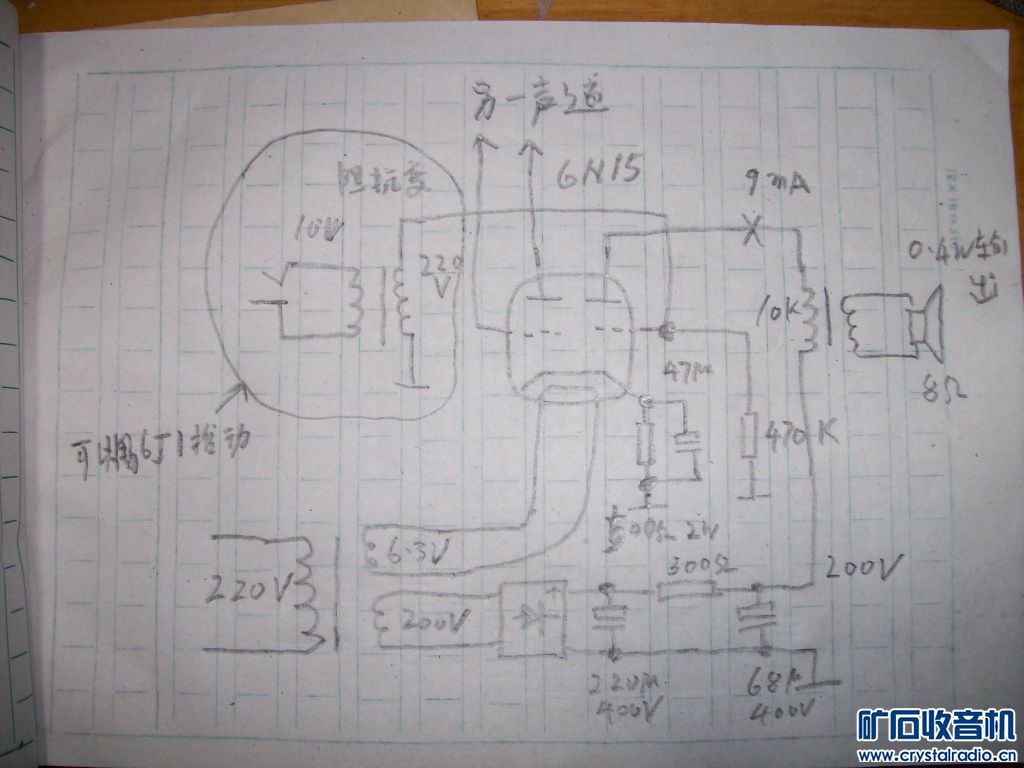 另一声道
6N15
9mA
阻抗变
10V
220
V
0.4W输
出
10K
47μ
8Ω
可以用6J1推动
470K
500Ω 2W
6.3V
300Ω
200V
220V
200V
220μ
400V
68μ
400V
矿石收音机
www.crystalradio.cn